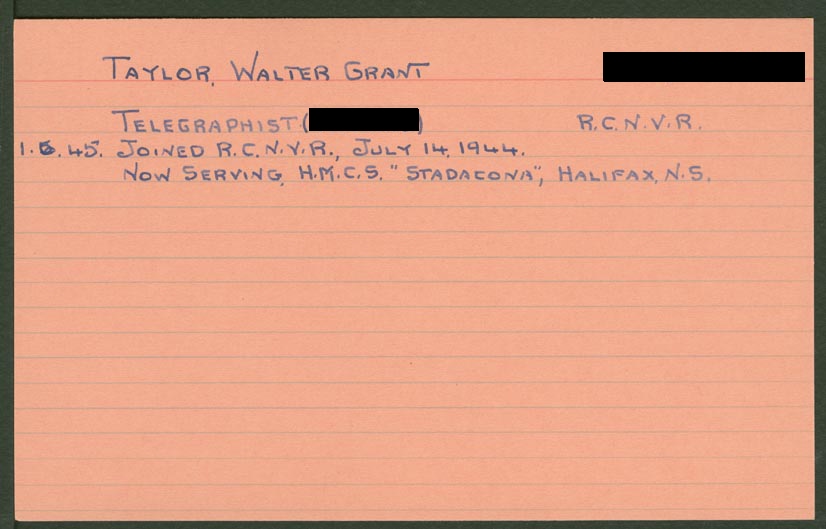 TAYLOR, WALTER GRANT
TELEGRAPHIST ( ) R.C.N.V.R.
1.6.45. JOINED R.C.N.V.R., JULY 14, 1944.
NOW SERVING, H.M.C.S. "STADACONA", HALIFAX, N.S.